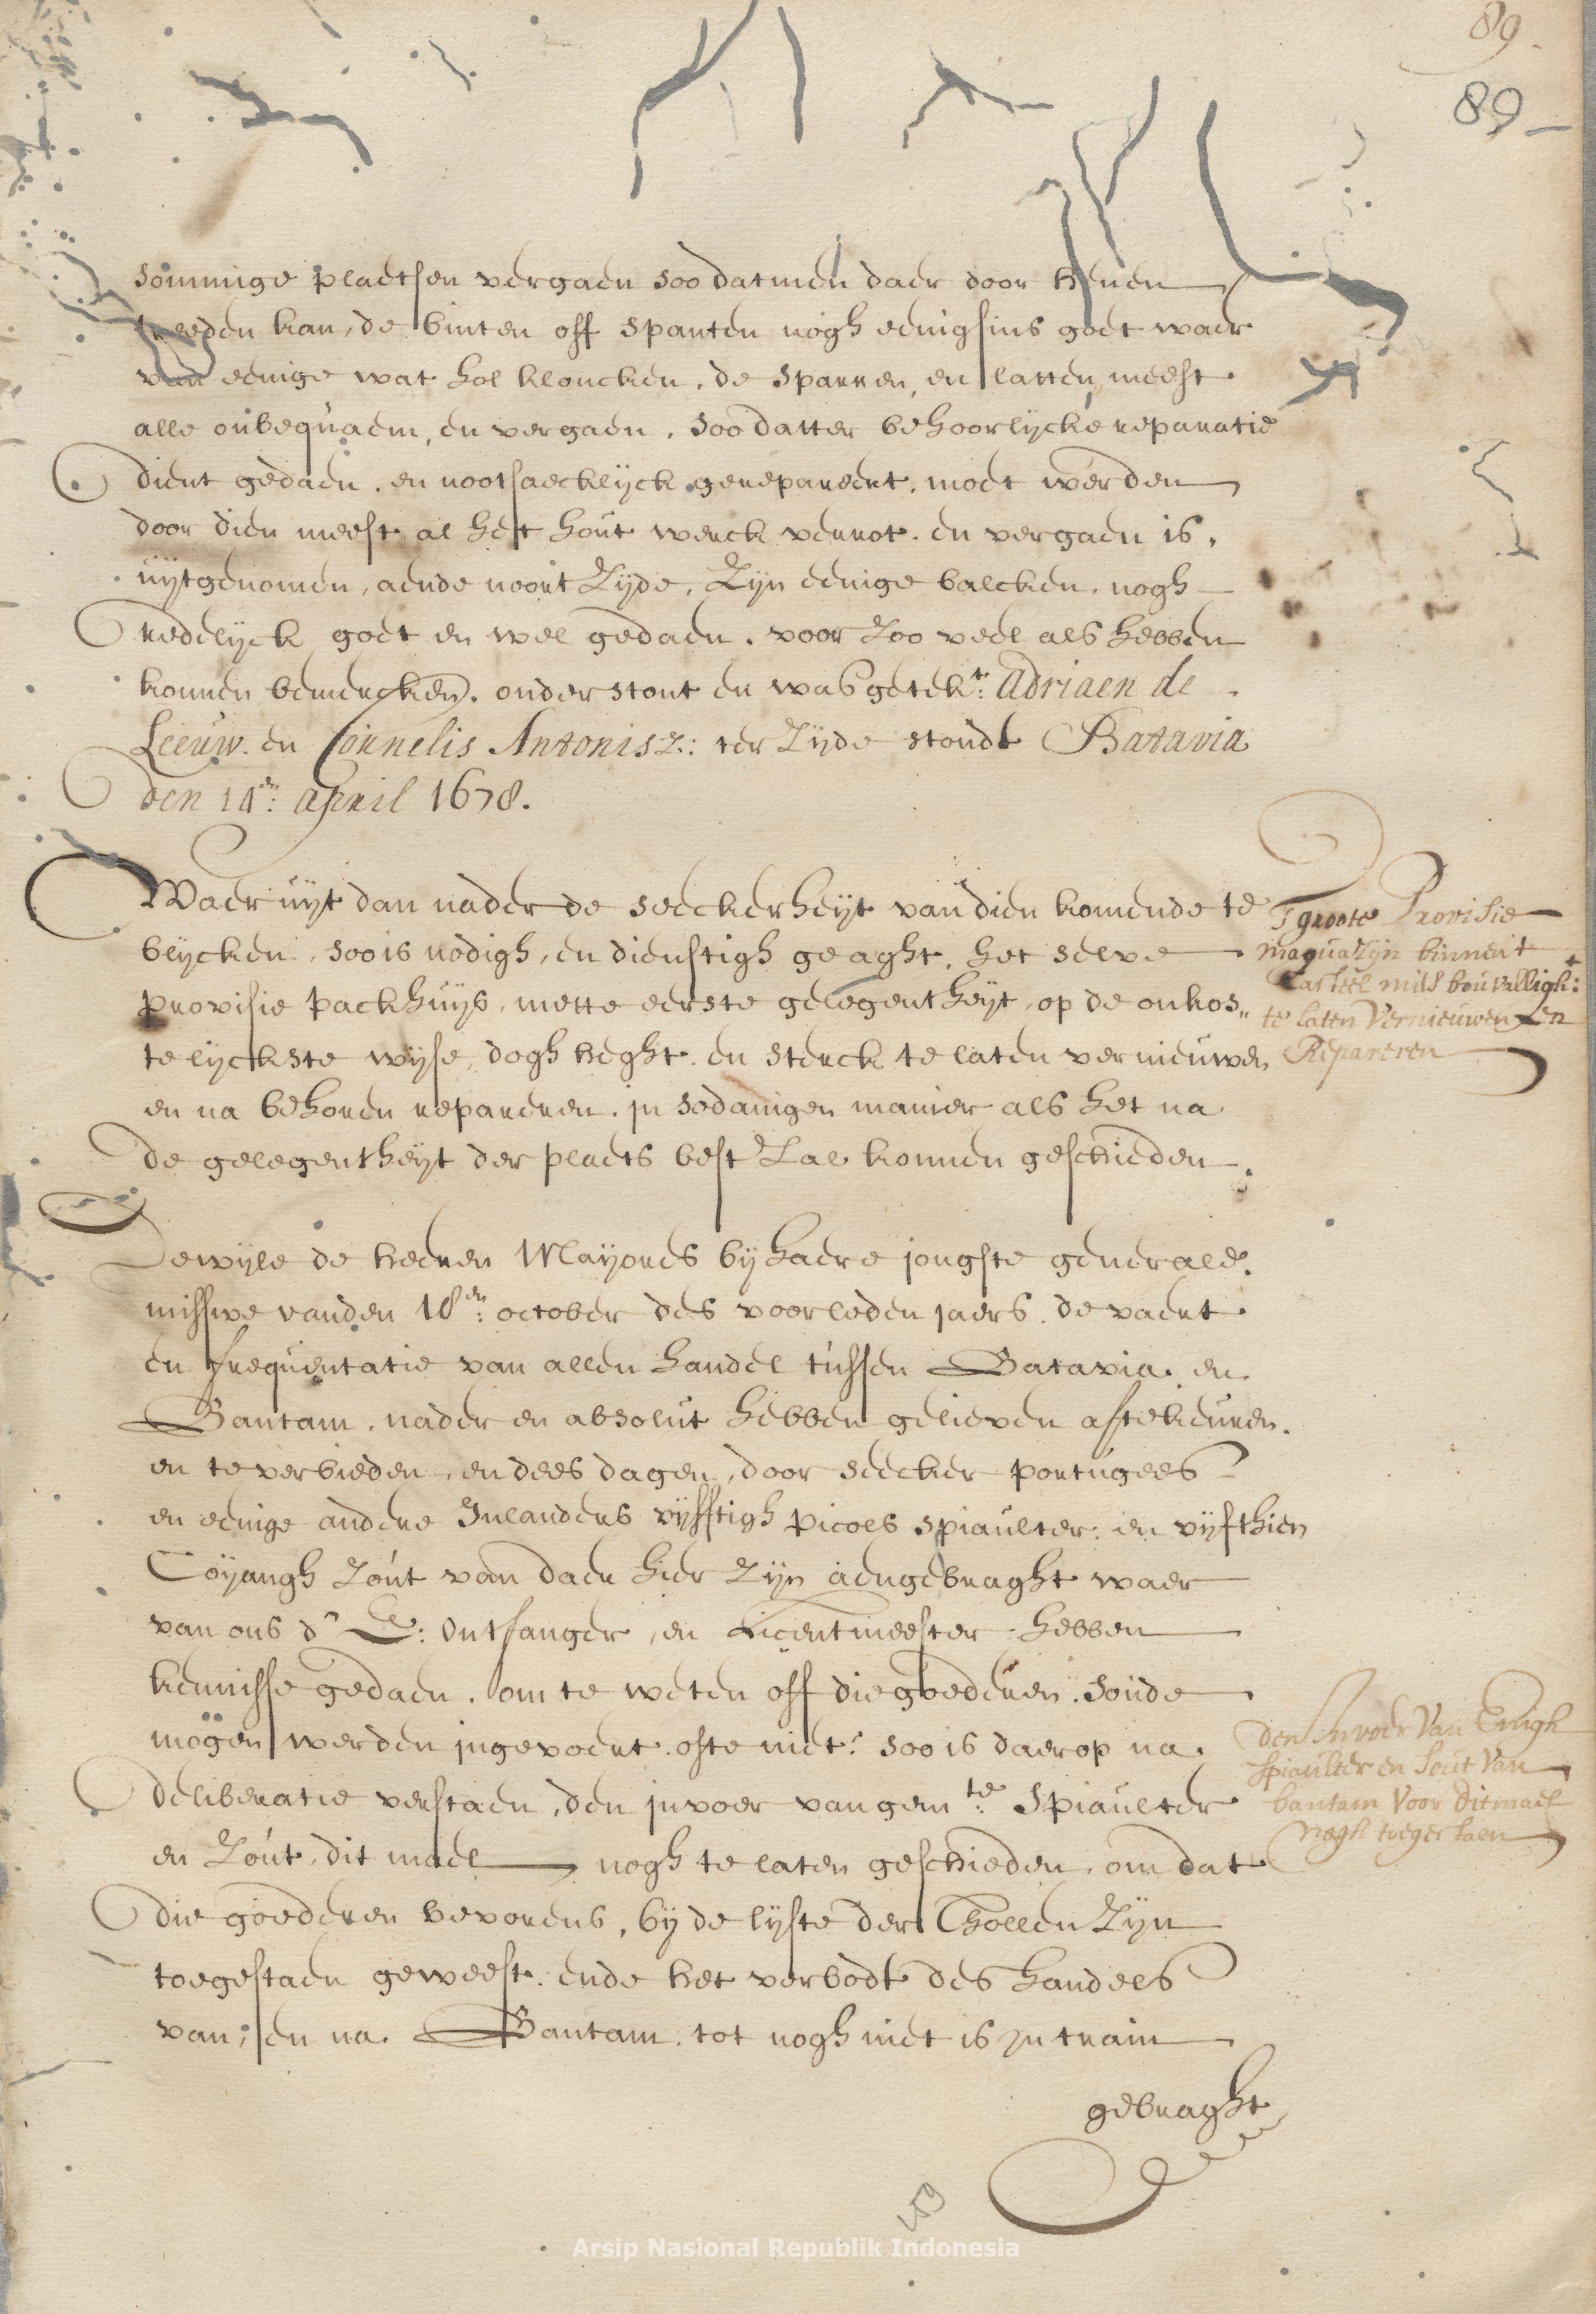 89.
89
sommige plaetsen vergaen soo datmen daer door henen
treeden kan, de binten off spanten nogh eenigsins goet waer
van eenige wat hol kloncken. de sparren, en latten, meest
alle onbequaem, en vergaen. soo datter behoorlijcke reparatie
dient gedaen. en nootsaecklijck gerepareert. moet werden
door dien meest al het hout werck verrot. en vergaen is,
uijtgenomen, aende noort zijde, zijn eenige balcken. nogh
redelijck goet en wel gedaen. voor zoo veel als hebben
konnen bemercken. onderstont en was getekt: Adriaen de
Leeuw. en Cornelis Antonisz: ter zijde stondt Batavia
den 14en: april 1678.
Waer uijt dan nader de seeckerheijt van dien komende te
blijcken, soo is nodigh, en dienstigh geaght, het selve
provisie packhuijs, mette eerste gelegentheijt, op de onkos„
telijckste wijse, dogh heght. en sterck te laten vernieuwen
en na behoren repareren. in sodanigen manier als het na
de gelegentheijt der plaets best zal konnen geschieden.
T groote Provisie
maguazijn binnen t
Casteel mits bouvalligh:t
te laten Vernieuwen En
Repareren
Dewijle de heeren Maijores bij haere jongste generale.
missive vanden 18en: october des voorleden jaers. de vaert
en frequentatie van allen handel tussen Batavia. en
Bantam, nader en absolut hebben gelieven aftekeuren.
en te verbieden, en dees dagen, door seecker portugees
en eenige andere Inlanders vijfftigh picols spiaulter: en vijfthien
Coijangh zout van daer hier zijn aengebraght waer
van ons d' E: ontfanger, en Licentmeester hebben
kennisse gedaen. om te weten off die goederen. soude
mogen werden ingevoert. ofte niet: soo is daerop na.
deliberatie verstaen, den invoer van gemte: spiaulter
en zout, dit mael nogh te laten geschieden. om dat
die goederen bevorens, bij de lijste der Thollen zijn
toegestaen geweest. ende het verbodt des handels
van, en na. Bantam. tot nogh niet is in train
den Invoer Van Enigh
spiaulter en sout Van
bantam Voor ditmael
nogh toegestaen
gebraght
159
Arsip Nasional Republik Indonesia